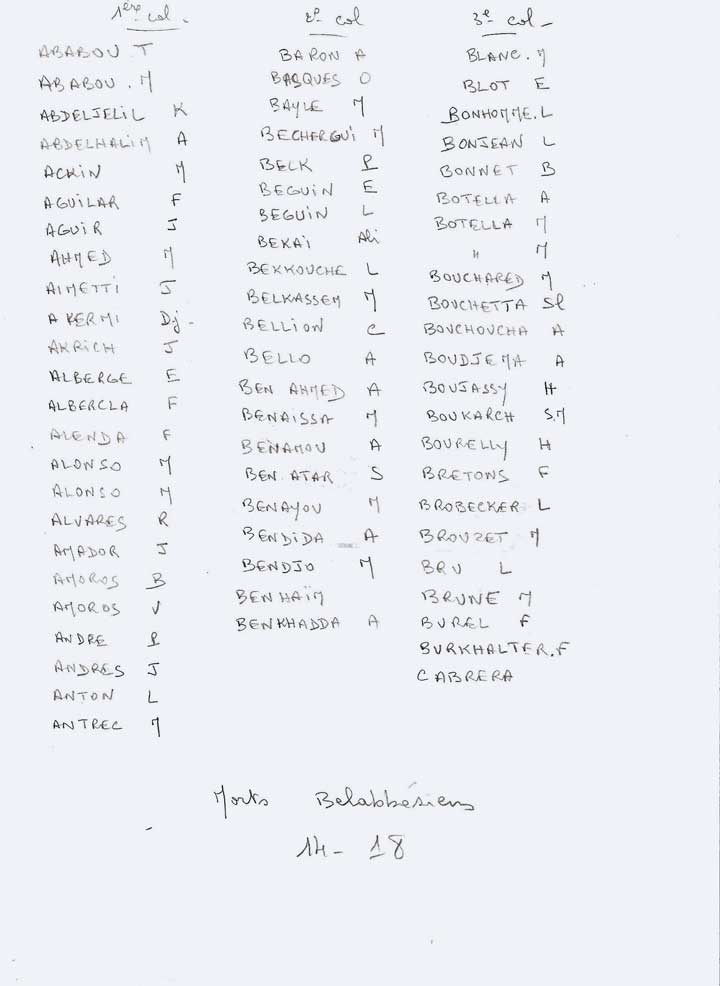 1ère col.
ABABOU T
ABABOU. M
ABDELJELIL K
ABDELHALIM A
ACKIN M
AGUILAR F
AGUIR J
AHMED M
AIMETTI J
AKERMI Dj.
AKRICH J
ALBERGE E
ALBERCLA F
ALENDA F
ALONSO M
ALONSO M
ALVARES R
AMADOR J
AMOROS B
AMOROS V
ANDRE P
ANDRES J
ANTON L
ANTREC M
2e col
BARON A
BASQUES O
BAYLE M
BECHERGUI M
BELK P
BEGUIN E
BEGUIN L
BEKAI Ali
BEKKOUCHE L
BELKASSEM M
BELLION C
BELLO A
BEN AHMED A
BENAISSA M
BENAMOU A
BEN ATAR S
BENAYOU M
BENDIDA A
BENDJO M
BENHAÏM
BENKHADDA A
3e col-
BLANC. M
BLOT E
BONHOMME. L
BONJEAN L
BONNET B
BOTELLA A
BOTELLA M
" M
BOUCHARED M
BOUCHETTA Sl
BOUCHOUCHA A
BOUDJEMA A
BOUJASSY H
BOUKARCH S.M
BOURELLY H
BRETONS F
BROBECKER L
BROUZET M
BRU L
BRUNE M
BUREL F
BURKHALTER. F
CABRERA
Morts Belabbésiens
14- 18